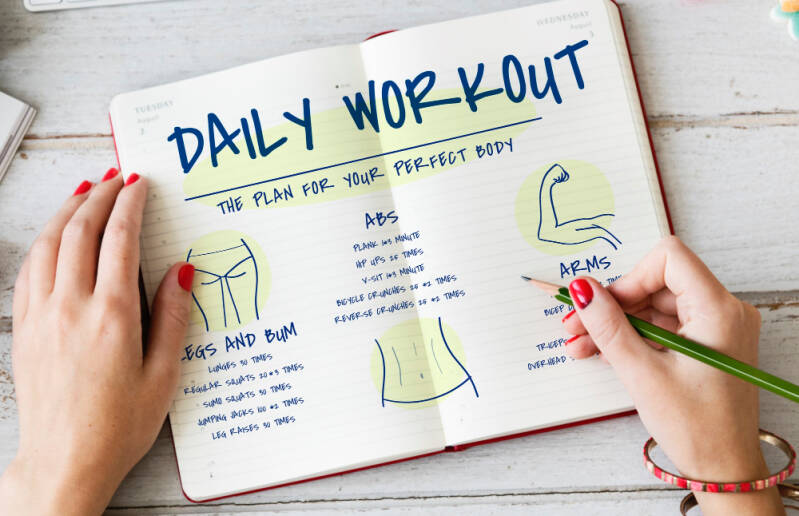 TUESDAY
August
2
WEDNESDAY
August
3
DAILY WORKOUT
THE PLAN FOR YOUR PERFECT BODY
ABS
PLANK 1*3 MINUTE
HIP UPS 25 TIMES
V-SIT 1*3 MINUTE
BICYCLE CRUNCHES 25 *2 TIMES
REVERSE CRUNCHES 25 *2 TIMES
LEGS AND BUM
LUNGES 30 TIMES
REGULAR SQUATS 20*3 TIMES
SUMO SQUATS 30 TIMES
JUMPING JACKS 100 *2 TIMES
LEG RAISES 30 TIMES
ARMS
TIMES
BICEP
TRICEPS
OVERHEAD